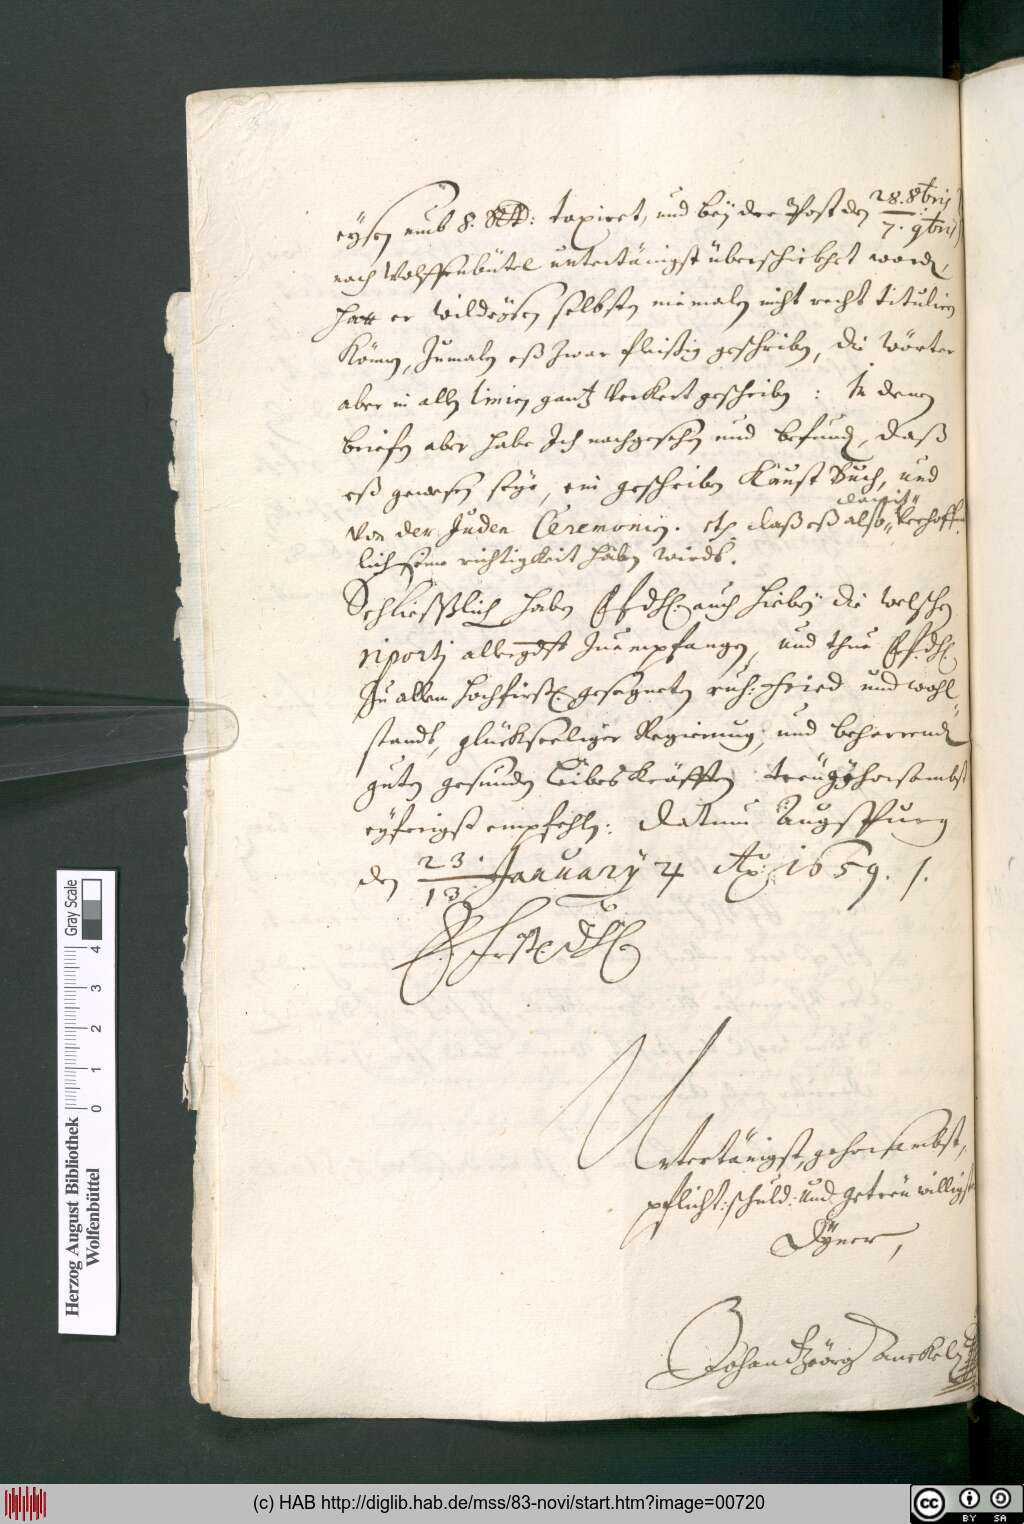 eysen umb 8. Rth: taxiret, und bey der Post den 28. 8bris
7. 9bris
nach Wolffenbütel untertänigst überschickhet word,
hatt er Wildeysen selbsten niemalen nicht recht tituliren
können, Zumalen eß zwar fleißig geschriben, die wörter
aber in allen linien gantz verkert geschriben: In denen
briefen aber habe Ich nachgesehen und befund, daß
eß gewesen seye, ein geschriben Kunst Buch, und
damit
von der Juden Ceremonien. etc. daß eß also verhoffent
lich seine richtigkeit haben wirdt.
Schliesßlich haben E f dhl. auch hiebey die welschen
riporti allergdst Zu empfangen, und thue E f. dhl.
Zu allem hochfürstl. gesegneten ruh: fried und wohl
stands, glückseeliger Regierung, und beharrend
guten gesunden Leibes kräfften treugehorsambst
eyferigst empfehlen: Datum Augspurg
den 23./13. January 4 Ao: 1659.
E. Fürstl Dhl.
Untertänigst, gehorsambst,
pflicht: schuld: und getreu willigst
Dyner,
Johan Georg Anckel
Herzog August Bibliothek
Wolfenbüttel
0 1 2 3 4
Gray Scale
(c) HAB http://diglib.hab.de/mss/83-novi/start.htm?image=00720
cc BY SA